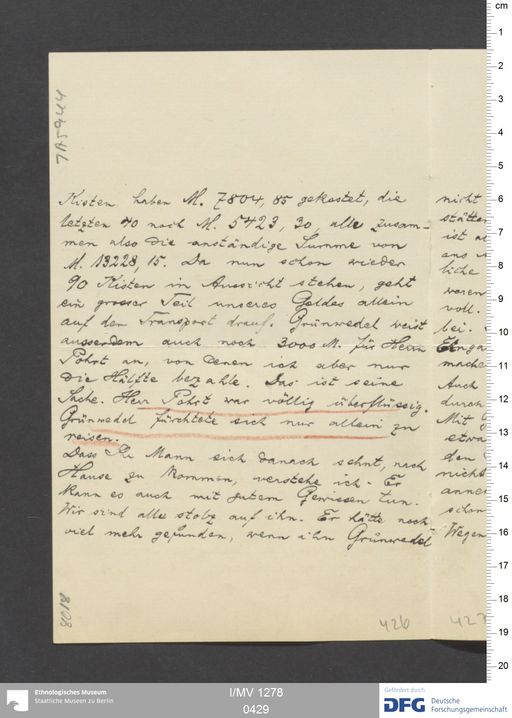 Kisten haben M. 7804,85 gekostet, die
letzten 40 noch M. 5423,30, alle zusam-
men also die anständige Summe von
M. 13228,15. Da nun schon wieder
90 Kisten in Aussicht stehen, geht
ein grosser Teil unseres Geldes allein
auf den Transport drauf. Grünwedel weist
ausserdem auch noch 3000 M. für Herrn
Pohrt an, von denen ich aber nur
die Hälfte bezahle. Das ist seine
Sache. Herr Pohrt war völlig überflüssig.
Grünwedel fürchtete sich nur allein zu
reisen.
Dass Ihr Mann sich danach sehnt, nach
Hause zu kommen, verstehe ich. Er
kann es auch mit gutem Gewissen tun.
Wir sind alle stolz auf ihn. Er hätte noch
viel mehr gefunden, wenn ihn Grünwedel
nicht
stätten
ist
aus
liche
waren
voll.
bei.
mache
Auch
durch
Mit
etwa
den
nicht
schon
Wegen
8018
426
427
cm
1
2
3
4
5
6
7
8
9
10
11
12
13
14
15
16
17
18
19
20
Ethnologisches Museum
Staatliche Museen zu Berlin
I/MV 1278
0429
Gefördert durch
DFG Deutsche
Forschungsgemeinschaft